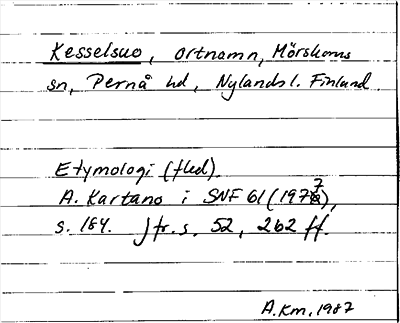 Kesselsuo, ortnamn, Mörskoms
sn, Pernå hd, Nylands l. Finland
Etymologi (fled).
A. Kartano i SNF 61 (1977),
s. 184. Jfr. s. 52, 262 ff.
A.Km, 1987